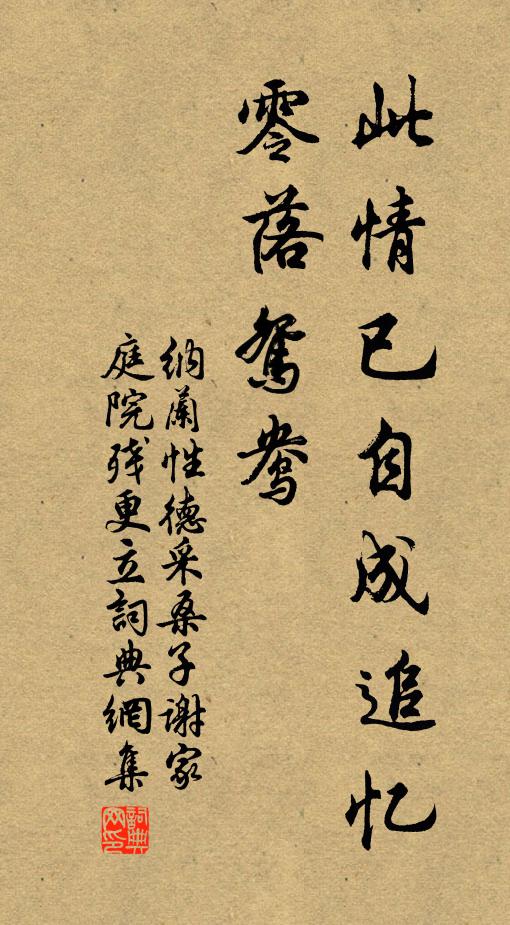 此情已自成追忆
零落鸳鸯
纳蘭性德采桑子谢家
庭院残更立詞典網集
詞典
网印